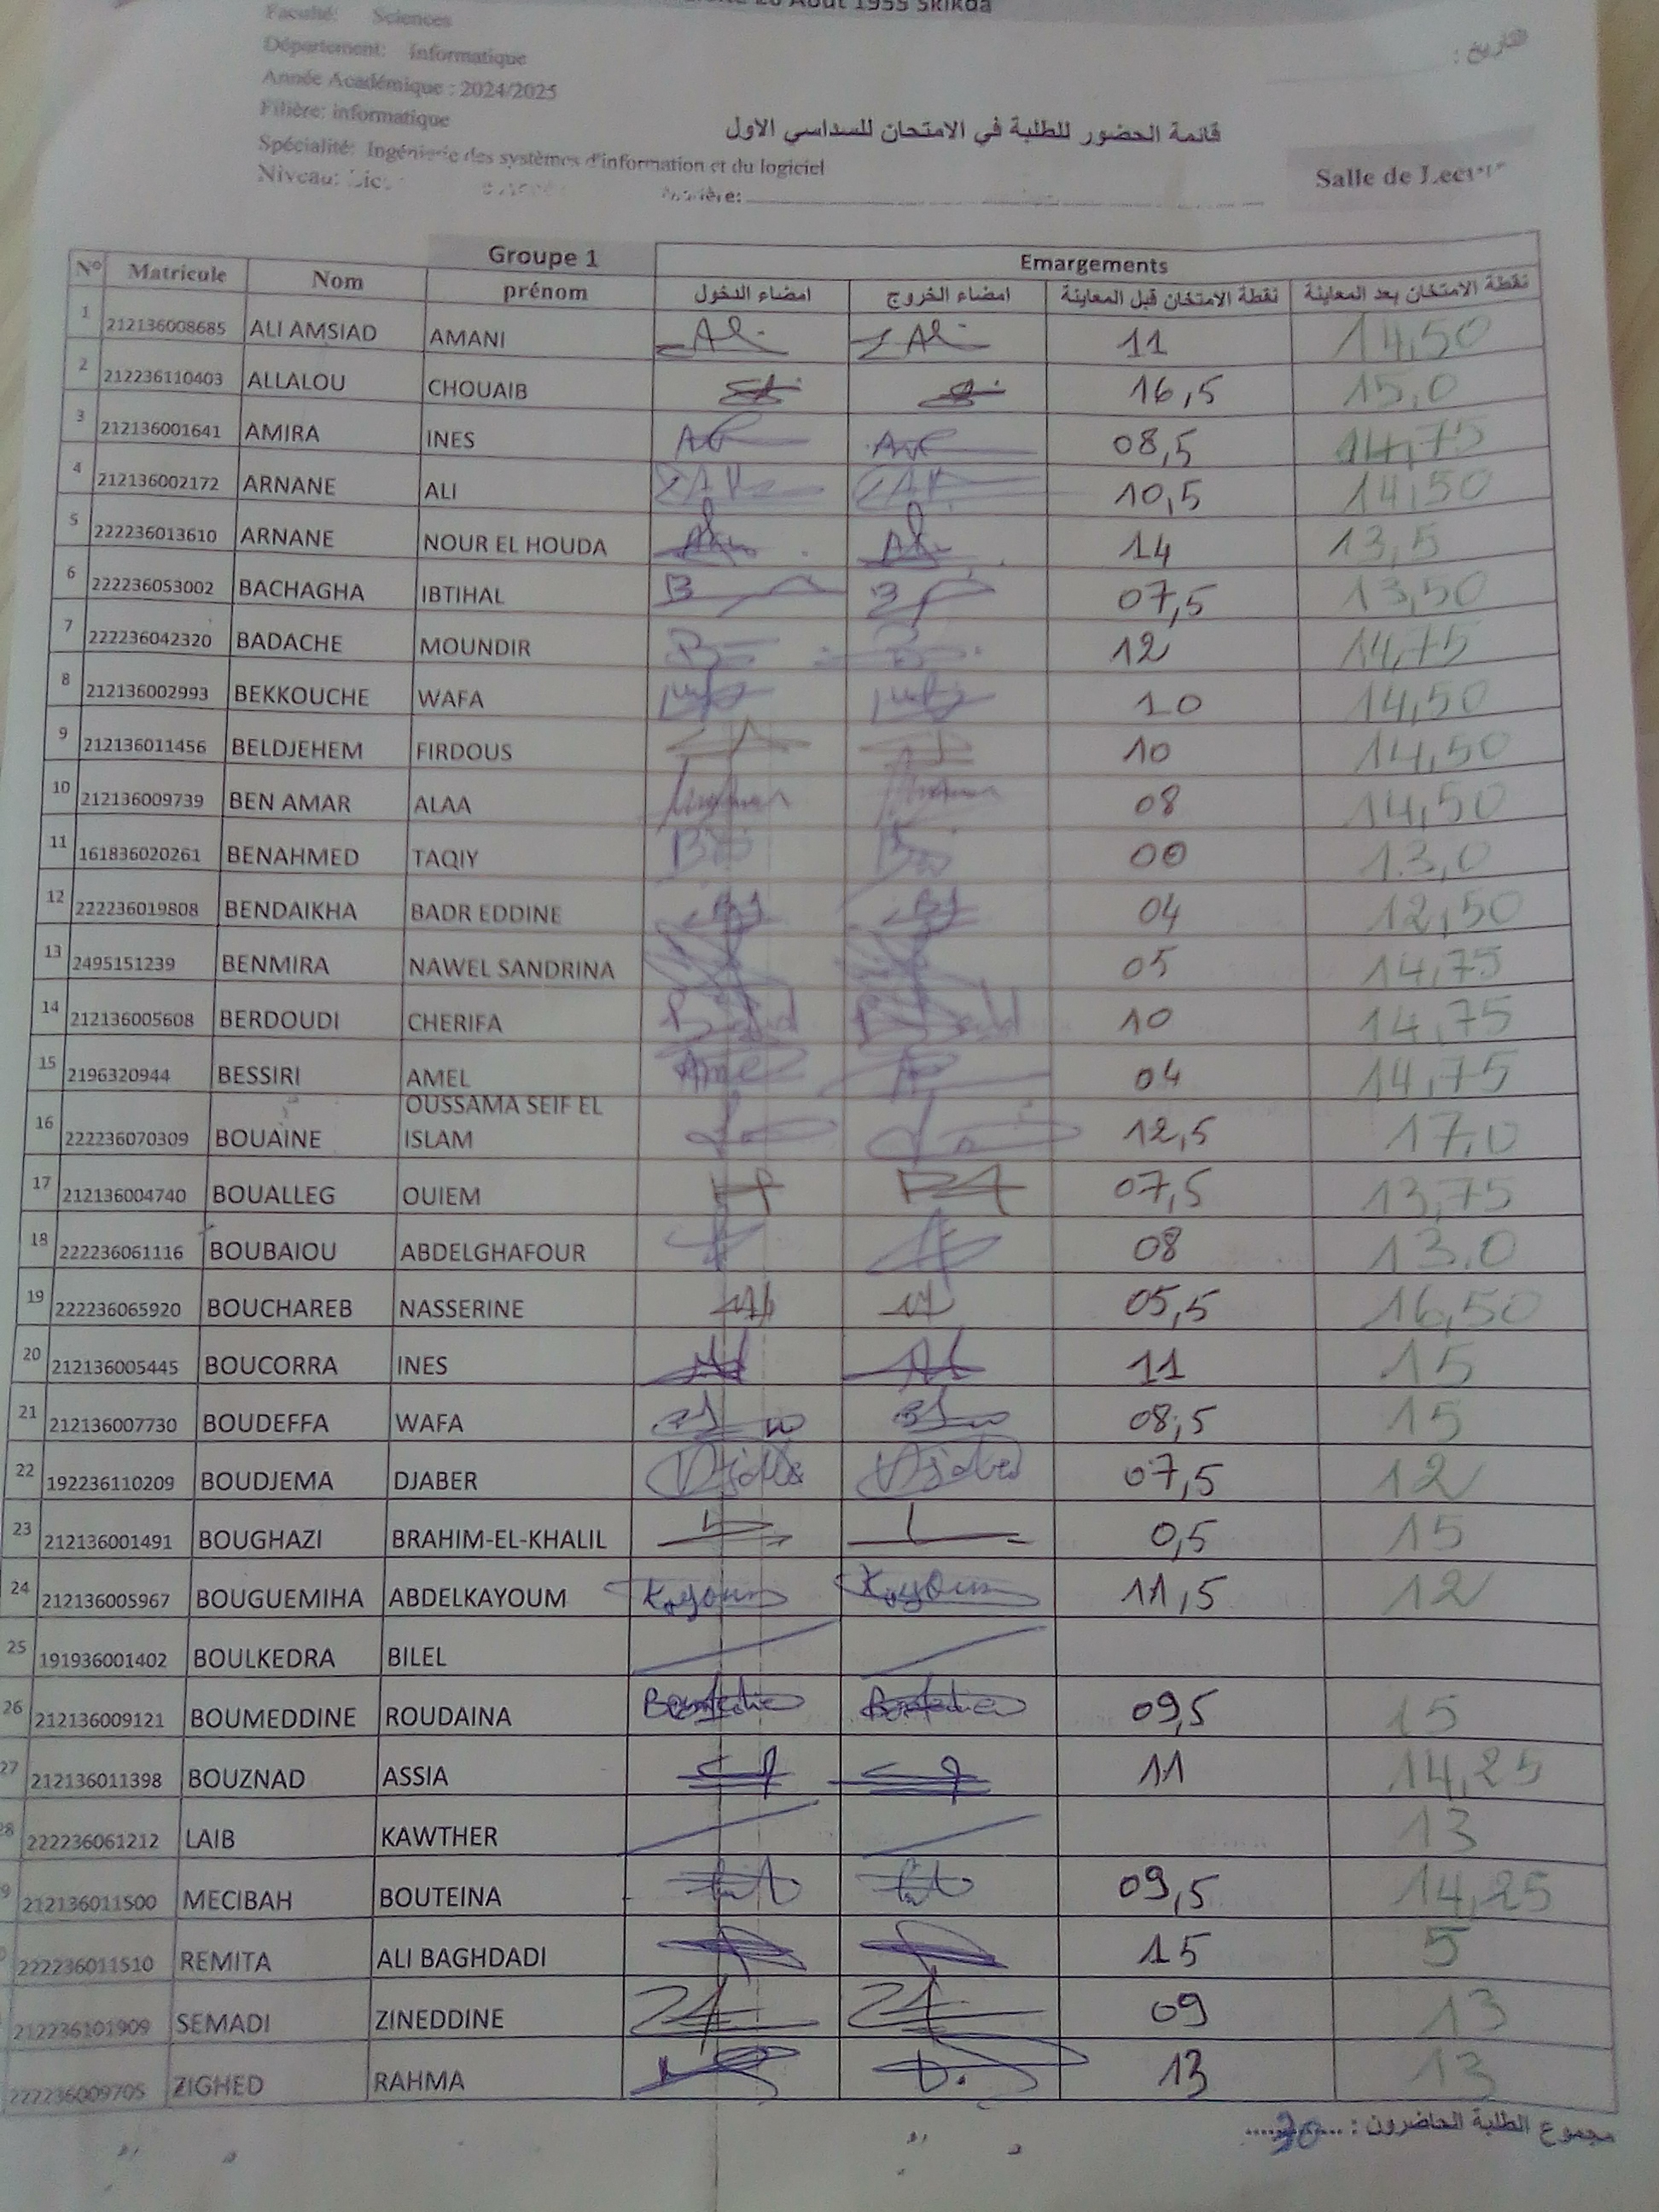 20 Août 1955 Skikda
Faculté: Sciences
Département: Informatique
التاريخ :
Année Académique : 2024/2025
Filière: informatique
قائمة الحضور للطلبة في الامتحان للسداسي الاول
Spécialité: Ingénierie des systèmes d'information et du logiciel
Niveau: Lic.
Salle de Lect
Groupe 1 Emargements
N° Matricule Nom prénom امضاء الدخول امضاء الخروج نقطة الامتحان قبل المعاينة نقطة الامتحان بعد المعاينة
1 212136008685 ALI AMSIAD AMANI 11 14,50
2 212236110403 ALLALOU CHOUAIB 16,5 15,0
3 212136001641 AMIRA INES 08,5 14,75
4 212136002172 ARNANE ALI 10,5 14,50
5 222236013610 ARNANE NOUR EL HOUDA 14 13,5
6 222236053002 BACHAGHA IBTIHAL 07,5 13,50
7 222236042320 BADACHE MOUNDIR 12 14,75
8 212136002993 BEKKOUCHE WAFA 10 14,50
9 212136011456 BELDJEHEM FIRDOUS 10 14,50
10 212136009739 BEN AMAR ALAA 08 14,50
11 161836020261 BENAHMED TAQIY 00 13,0
12 222236019808 BENDAIKHA BADR EDDINE 04 12,50
13 2495151239 BENMIRA NAWEL SANDRINA 05 14,75
14 212136005608 BERDOUDI CHERIFA 10 14,75
15 2196320944 BESSIRI AMEL Amel 04 14,75
16 222236070309 BOUAINE OUSSAMA SEIF EL ISLAM 12,5 17,0
17 212136004740 BOUALLEG OUIEM 07,5 13,75
18 222236061116 BOUBAIOU ABDELGHAFOUR 08 13,0
19 222236065920 BOUCHAREB NASSERINE 05,5 16,50
20 212136005445 BOUCORRA INES 11 15
21 212136007730 BOUDEFFA WAFA 08,5 15
22 192236110209 BOUDJEMA DJABER Djaber 07,5 12
23 212136001491 BOUGHAZI BRAHIM-EL-KHALIL 0,5 15
24 212136005967 BOUGUEMIHA ABDELKAYOUM Kayoum Kayoum 11,5 12
25 191936001402 BOULKEDRA BILEL
26 212136009121 BOUMEDDINE ROUDAINA 09,5 15
27 212136011398 BOUZNAD ASSIA 11 14,25
28 222236061212 LAIB KAWTHER 13
9 212136011500 MECIBAH BOUTEINA 09,5 14,25
222236011510 REMITA ALI BAGHDADI 15 5
212236101909 SEMADI ZINEDDINE 09 13
222236009705 ZIGHED RAHMA 13 13
مجموع الطلبة الحاضرون : 30